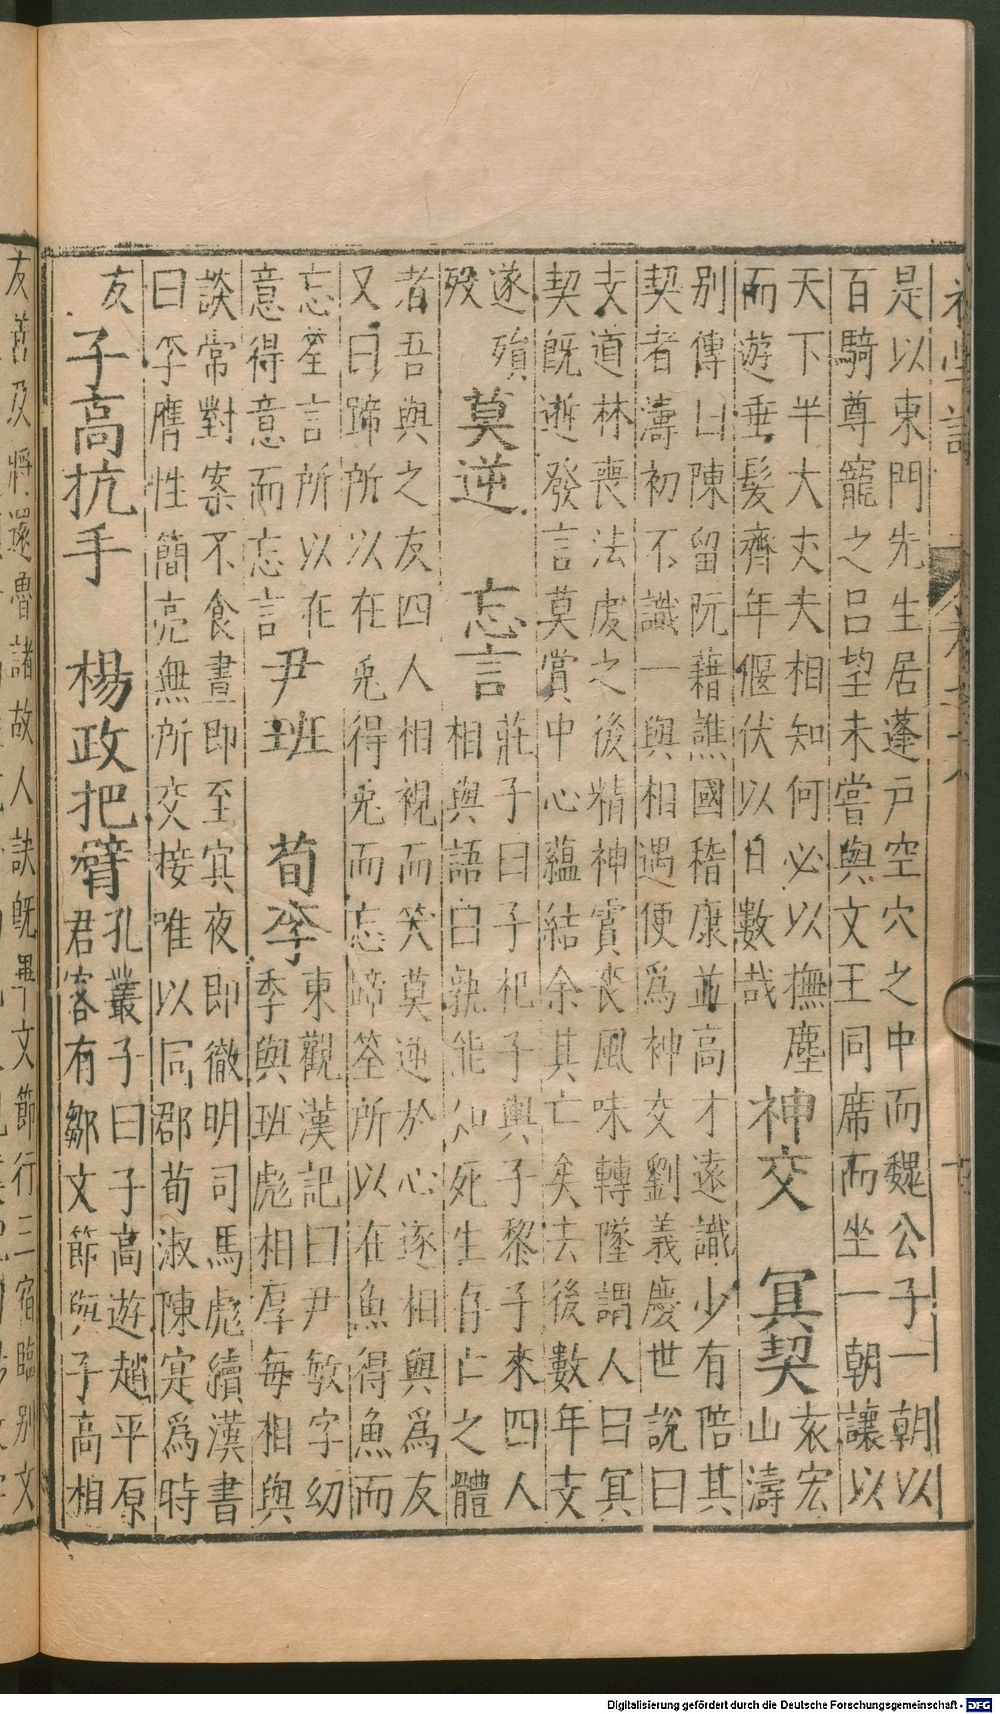 是以東門先生居蓬戶空穴之中而魏公子一朝以
百騎尊寵之呂望未嘗與文王同席而坐一朝讓以
天下半大夫夫相知何必以撫塵
而遊垂髮齊年偃伏以日數哉
神交　冥契
袁宏
山濤
別傳曰陳留阮藉譙國嵇康並高才遠識少有倍其
契者濤初不識一與相遇便爲神交劉義慶世說曰
支道林喪法虔之後精神霣喪風味轉墜謂人曰冥
契旣逝發言莫賞中心蘊結余其亡矣去後數年支
遂殞
歿
莫逆　忘言
莊子曰子杞子輿子黎子來四人
相與語曰孰能知死生存亡之體
者吾與之友四人相視而笑莫逆於心遂相與爲友
又曰蹄所以在兎得兎而忘蹄筌所以在魚得魚而
忘筌言所以在
意得意而忘言
尹班　荀李
東觀漢記曰尹敏字幼
季與班彪相厚每相與
談常對案不食晝即至冥夜即徹明司馬彪續漢書
曰李膺性簡亮無所交接唯以同郡荀淑陳寔爲時
友
子高抗手　楊政把臂
孔叢子曰子高遊趙平原
君客有鄒文節與子高相
友善及將還魯諸故人訣旣畢文節行三宿臨別文
Digitalisierung gefördert durch die Deutsche Forschungsgemeinschaft - DFG